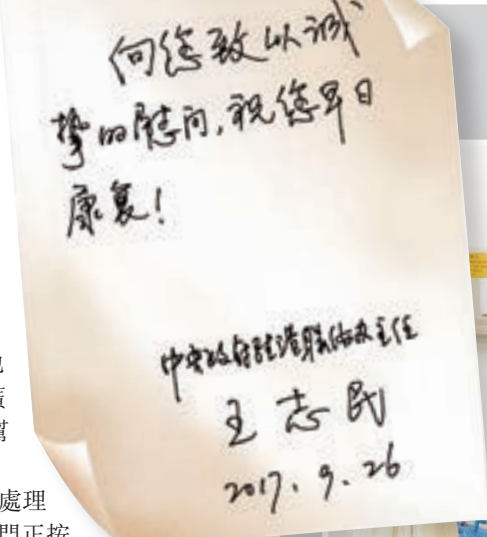 向您致以诚
挚的慰问，祝您早日
康复！
中央政府驻港联络办主任
王志民
2017.9.26
處理
門正按